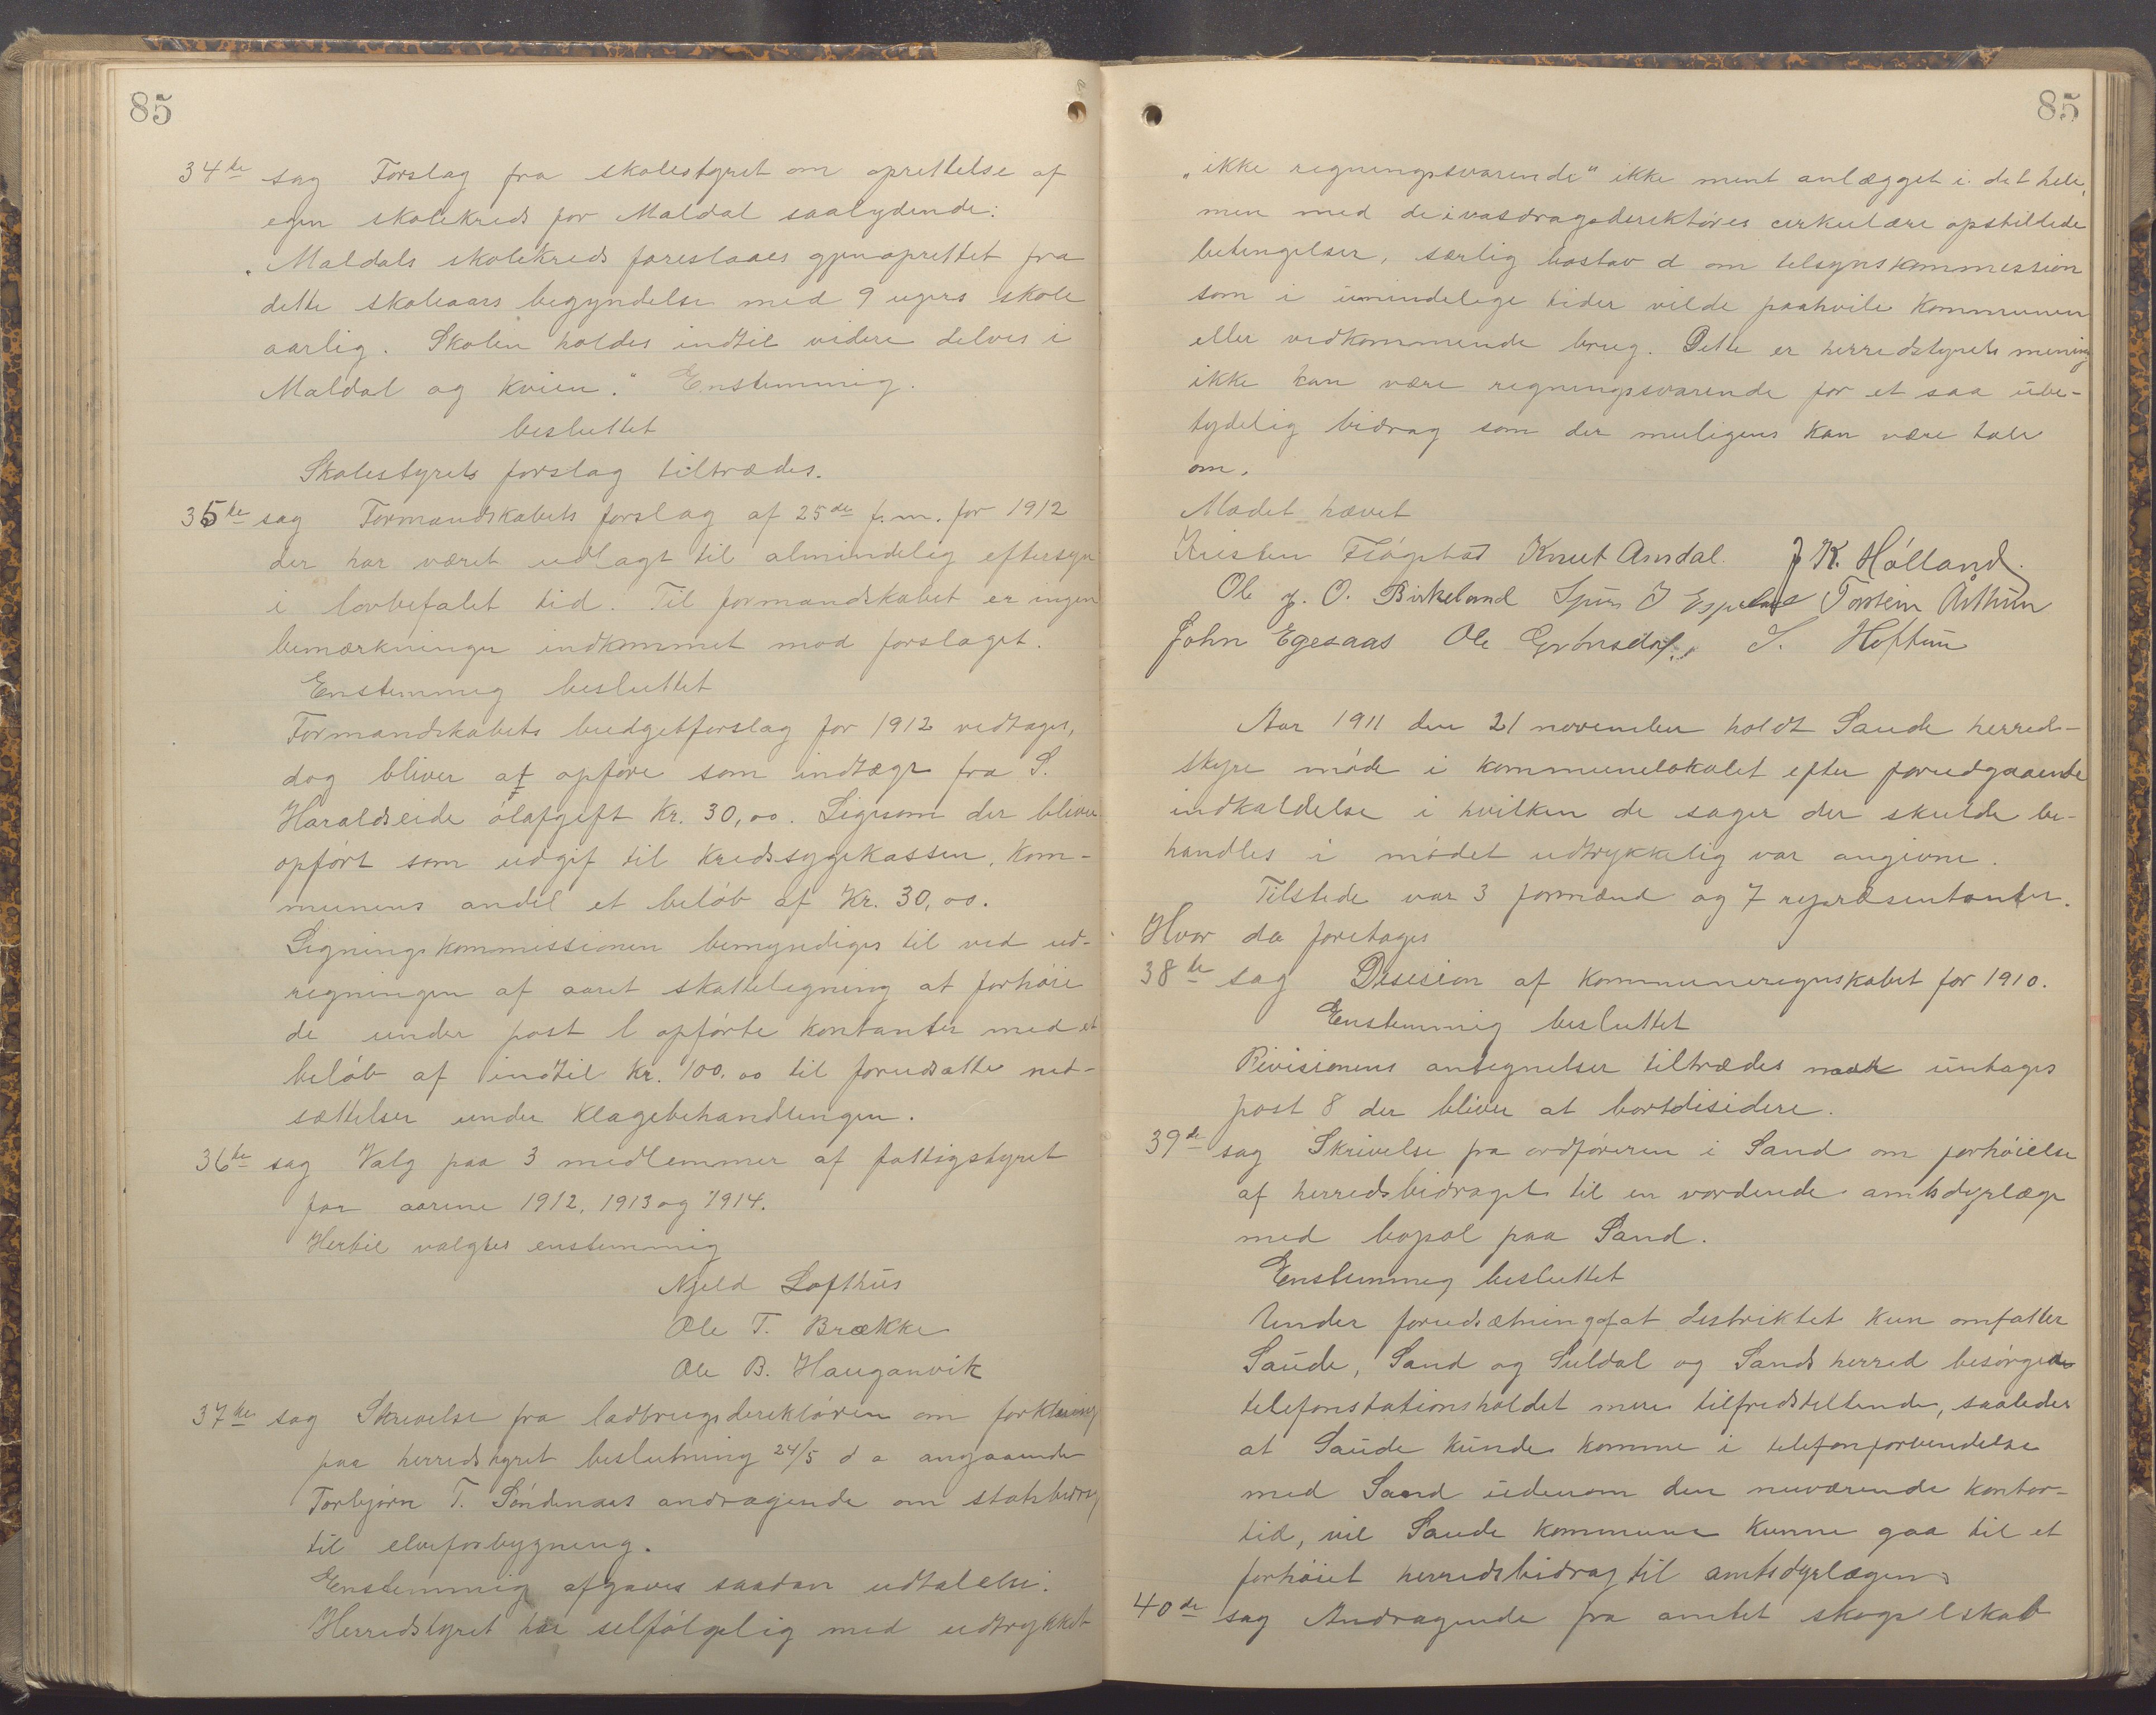 85
34de sag Forslag fra skolestyret om oprettelse af
egen skolekreds for Maldal saalydende:
"Maldals skolekreds foreslaaes gjenoprettet fra
dette skoleaars begyndelse med 9 ugers skole
aarlig. Skolen holdes indtil videre delves i
Maldal og Kvien." Enstemmig
besluttet
Skolestyrets forslag tiltrædes.
35te sag Formandskabets forslag af 25de f.m. for 1912
der har været udlagt til almindelig eftersyn
i lovbefalet tid. Til formandskabet er ingen
bemærkninger indkommet mod forslaget.
Enstemmig besluttet
Formandskabets budgetforslag for 1912 vedtages,
dog bliver at opføre som indtægt fra S.
Haraldseide ølafgift kr. 30,00. Ligesom der bliver
opført som udgif til kredssygekassen, kom-
munens andel et beløb af kr. 30,00.
Ligningskommissionen bemyndiges til ved ud-
regningen af aaret skatteligning at forhøie
de under post l opførte kontanter med et
beløb af indtil kr. 100,00 til forudsatte ned-
sættelser under klagebehandlingen.
36te sag Valg paa 3 medlemmer af fattigstyret
for aarene 1912, 1913 og 1914.
Hertil valgtes enstemmig
Njeld Lofthus
Ole T. Brække
Ole B. Hauganvik
37te sag Skrivelse fra ladbrugsdirektøren om forklaring
paa herredstyret beslutning 24/5 d a angaaende
Torbjørn T. Søndenaas andragende om statsbidrag
til elveforbygning.
Enstemmig afgaves saadan udtalelse.
Herredstyret har selfølgelig med udtrykket
85
"ikke regningsvarende" ikke ment anlægget i det hele,
men med de i vasdragsdirektøres cirkulære opstillede
betingelser, særlig bostav d om tilsynskommission
som i umindelige tider vilde paahvile kommunen
eller vedkommende brug. Dette er herredstyrets mening
ikke kan være regningsvarende for et saa ube-
tydelig bidrag som der muligens kan være tale
om.
Mødet hævet
Kristen Fløgstad Knut Amdal. J K. Hólland.
Ole J. O. Birkeland J Espeland Torstein Årthun
John Egesaas Ole Grónsdal. S. Hoftun
Aar 1911 den 21 november holdt Saude herred-
styre møde i kommunelokalet efter forudgaaende
indkaldelse i hvilken de sager der skulde be-
handles i mødet udtrykkelig var angivne.
Tilstede var 3 formænd og 7 repræsentanter.
Hvor da foretages
38te sag Desision af kommuneregnskabet for 1910.
Enstemmig besluttet
Rivisionens antegnelser tiltrædes untages
post 8 der bliver at bortdisidere.
39de sag Skrivelse fra ordføreren i Sand om forhøielse
af herredsbidraget til en vordende amtsdyrlæge
med bopæl paa Sand.
Enstemmig besluttet
Under forudsætning af at distriktet kun omfatter
Saude, Sand og Suldal og Sands herred besørger
telefonstationsholdet mere tilfredstillende, saaledes
at Saude kunde komme i telefonforbindelse
med Sand udenom den nuværende kontor-
tid, vil Saude kommune kunne gaa til et
forhøiet herredsbidrag til amtsdyrlægen
40de sag Andragende fra amtet skogselskab